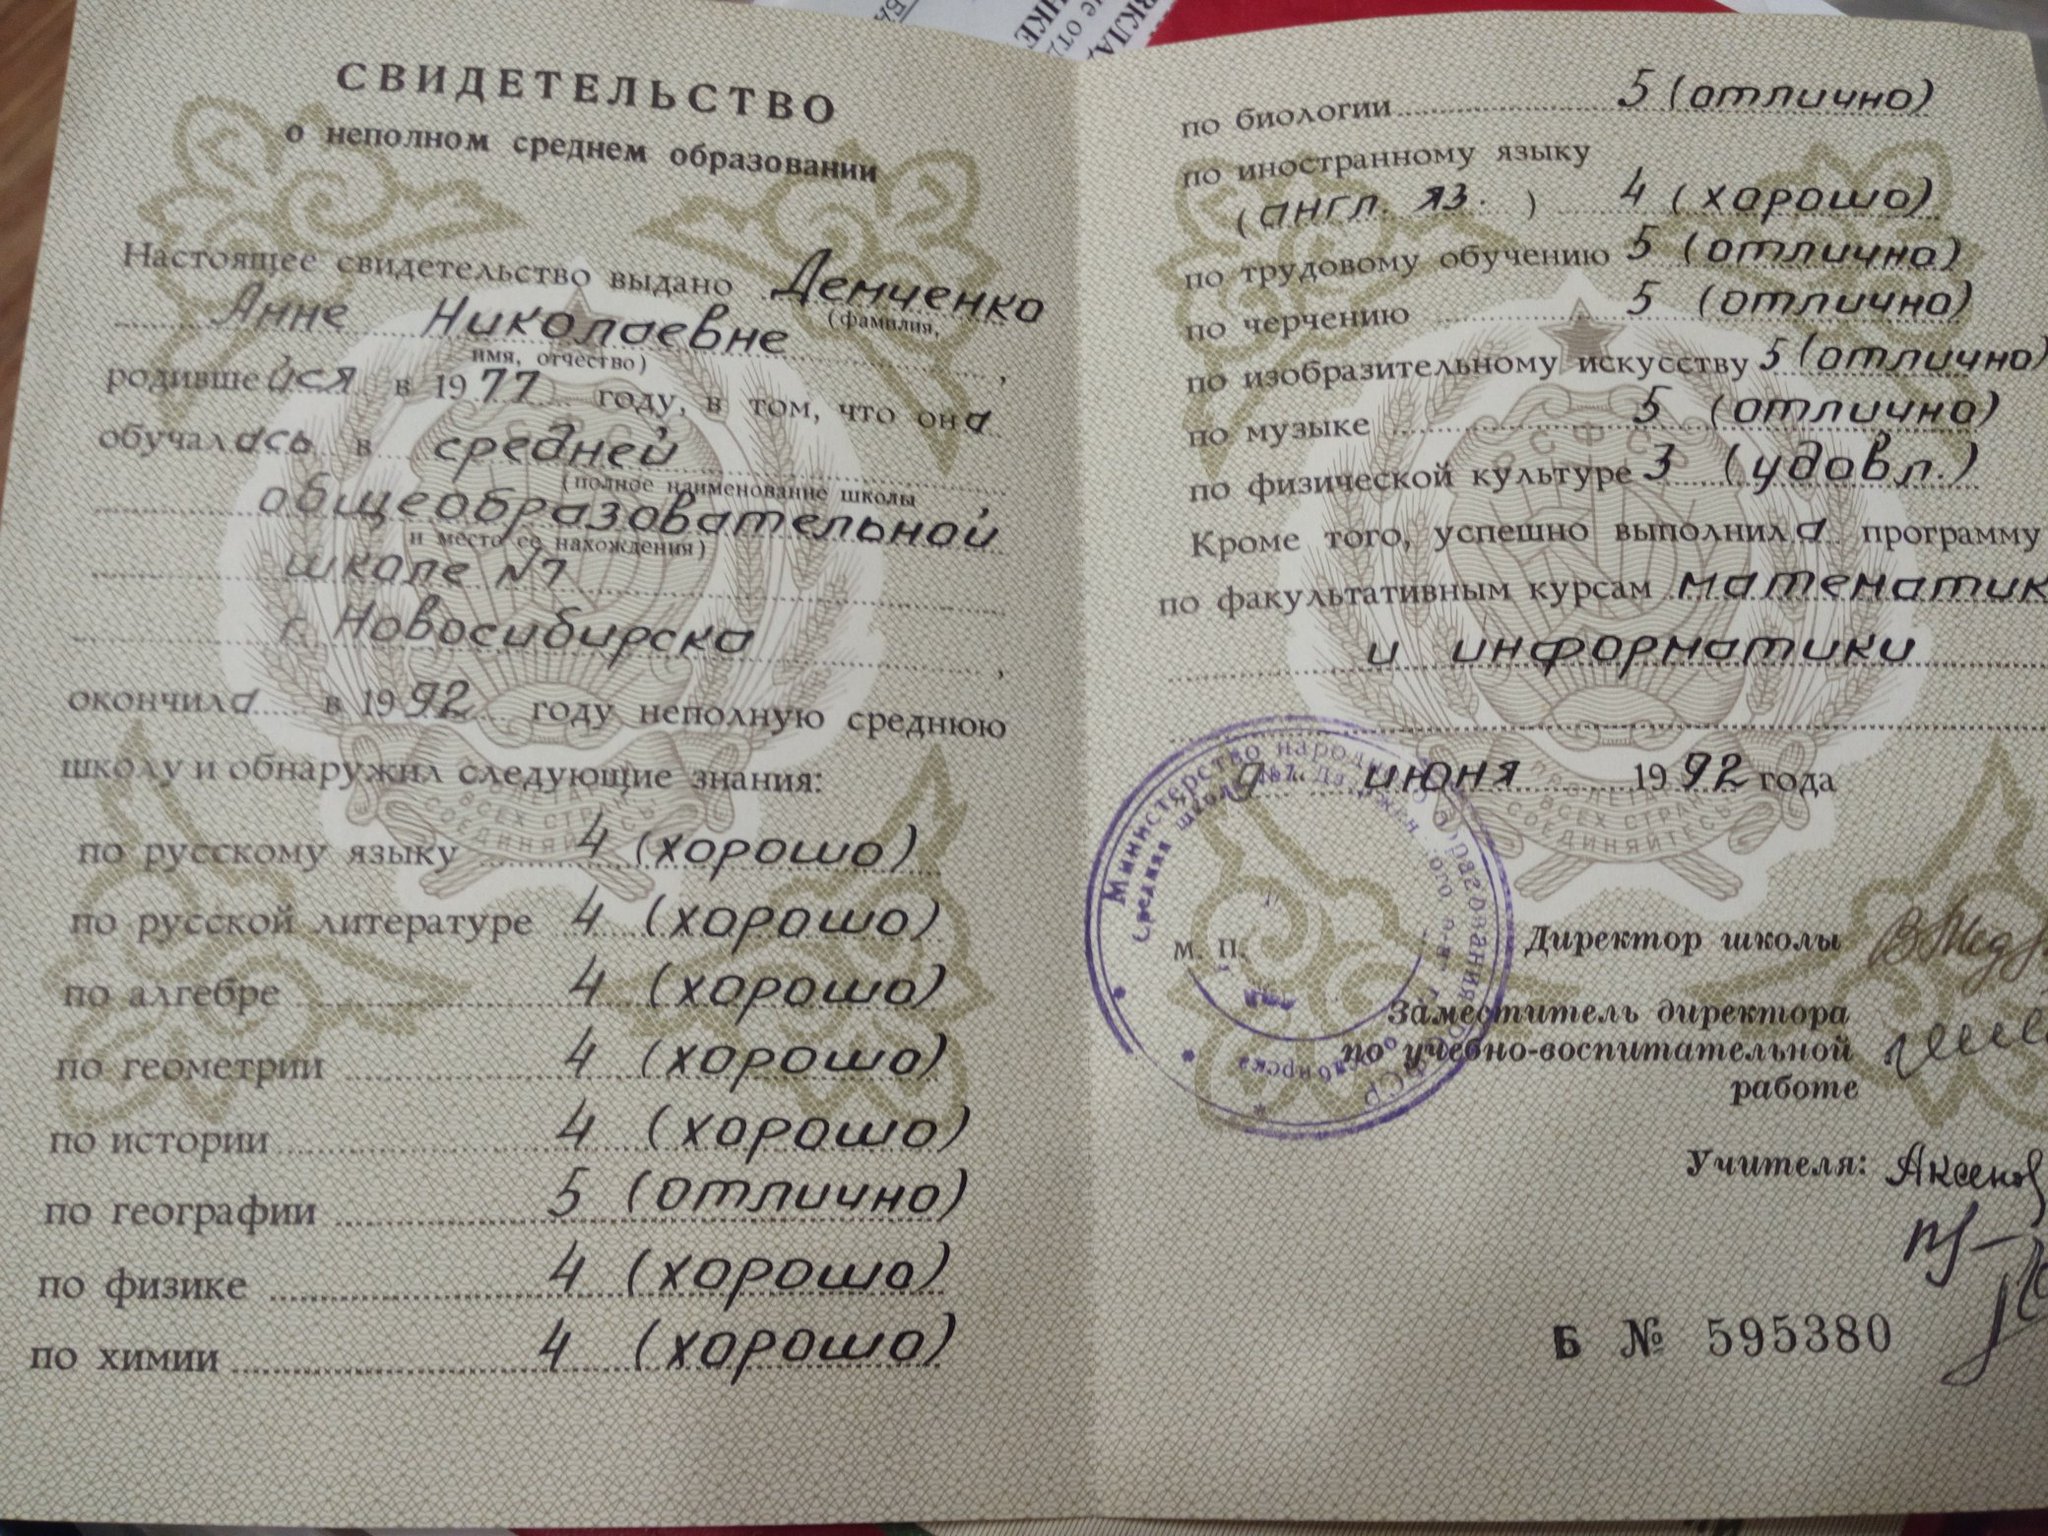 СВИДЕТЕЛЬСТВО
о неполном среднем образовании
Настоящее свидетельство выдано Демченко
(фамилия,
Анне Николаевне
имя, отчество)
родившейся в 1977 году, в том, что она
обучалась в средней
(полное наименование школы
общеобразовательной
и место ее нахождения)
школе №7
г. Новосибирска
окончила в 1992 году неполную среднюю
школу и обнаружил следующие знания:
по русскому языку 4 (хорошо)
по русской литературе 4 (хорошо)
по алгебре 4 (хорошо)
по геометрии 4 (хорошо)
по истории 4 (хорошо)
по географии 5 (отлично)
по физике 4 (хорошо)
по химии 4 (хорошо)
по биологии 5 (отлично)
по иностранному языку
(англ. яз.) 4 (хорошо)
по трудовому обучению 5 (отлично)
по черчению 5 (отлично)
по изобразительному искусству 5 (отлично)
по музыке 5 (отлично)
по физической культуре 3 (удовл.)
Кроме того, успешно выполнила программу
по факультативным курсам математик
и информатики
9 июня 1992 года
Министерство народного образования РСФСР
Средняя школа №7
М. П.
Директор школы
Заместитель директора
по учебно-воспитательной
работе
Учителя: Аксенов
Б № 595380